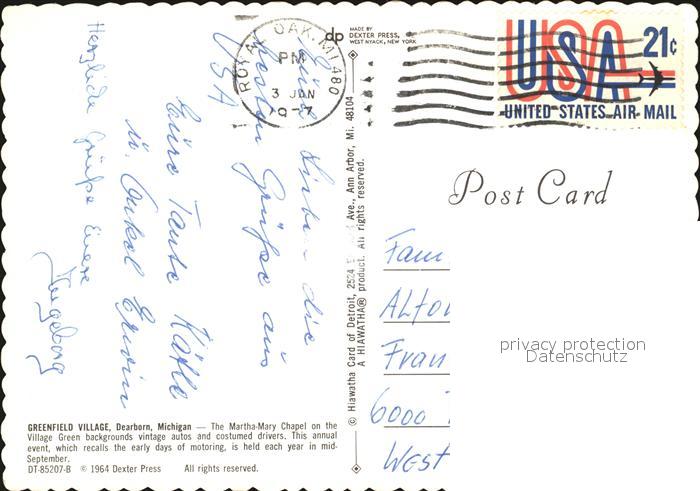 Liebe
die
besten Grüße aus
USA
Eure Tante Käthe
u. Onkel Erwin
Herzliche Grüße Eure
Ingeborg
GREENFIELD VILLAGE, Dearborn, Michigan — The Martha-Mary Chapel on the
Village Green backgrounds vintage autos and costumed drivers. This annual
event, which recalls the early days of motoring, is held each year in mid-
September.
DT-85207-B © 1964 Dexter Press All rights reserved.
dp
MADE BY
DEXTER PRESS,
WEST NYACK, NEW YORK
ROYAL OAK, MI 480
PM
3 JAN
197
© Hiawatha Card of Detroit, 2524 Ave., Ann Arbor, Mi. 48104
A HIAWATHA® product. All rights reserved.
USA
21¢
UNITED STATES AIR MAIL
Post Card
Fam
Alfo
Fran
6000
West
privacy protection
Datenschutz